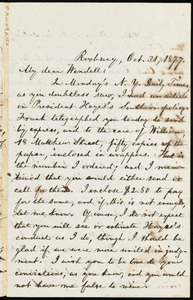 Roxbury, Oct. 31, 1877.
My dear Wendell:
In Monday's N. Y. Daily Times,
as you doubtless saw, I had an article
on President Hayes's Southern policy.
Frank telegraphed you today to send
by express, and to the care of William,
48 Matthew Street, fifty copies of the
paper, enclosed in wrappers. That is
the number I ordered; and I men-
tioned that you would either send or
call for them. I enclose $2.50 to pay
for the same, and if this is not enough,
let me know. Of course, I do not expect
that you will see or estimate Hayes's
conduct as I do, though I should be
glad if we were more united in judg-
ment. I wish you to be true to your
convictions, as you know, and you would
not have me false to mine.